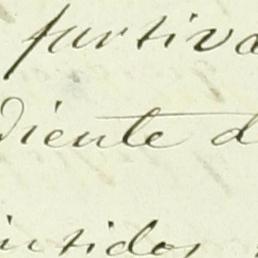 furtiva
diente d
intidos